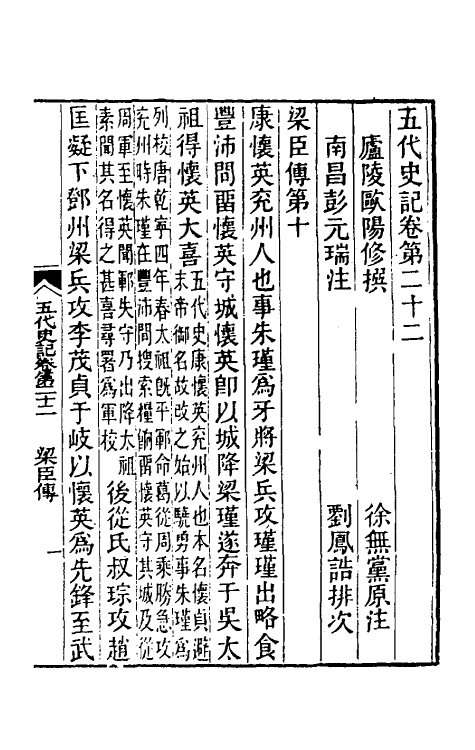 五代史記卷第二十二
廬陵歐陽修撰
徐無黨原注
南昌彭元瑞注
劉鳳誥排次
梁臣傳第十
康懷英兖州人也事朱瑾爲牙將梁兵攻瑾瑾出略食
豐沛間畱懷英守城懷英卽以城降梁瑾遂奔于吳太
祖得懷英大喜
五代史康懷英兖州人也本名懷貞避
末帝御名故改之始以驍勇事朱瑾爲
列校唐乾寧四年春太祖旣平鄆命葛從周乘勝急攻
兖州時朱瑾在豐沛間搜索糧餉畱懷英守其城及從
周軍至懷英聞鄆失守乃出降太祖
素聞其名得之甚喜尋署爲軍校
後從氏叔琮攻趙
匡凝下鄧州梁兵攻李茂貞于岐以懷英爲先鋒至武
五代史記卷第二十二
梁臣傳
一